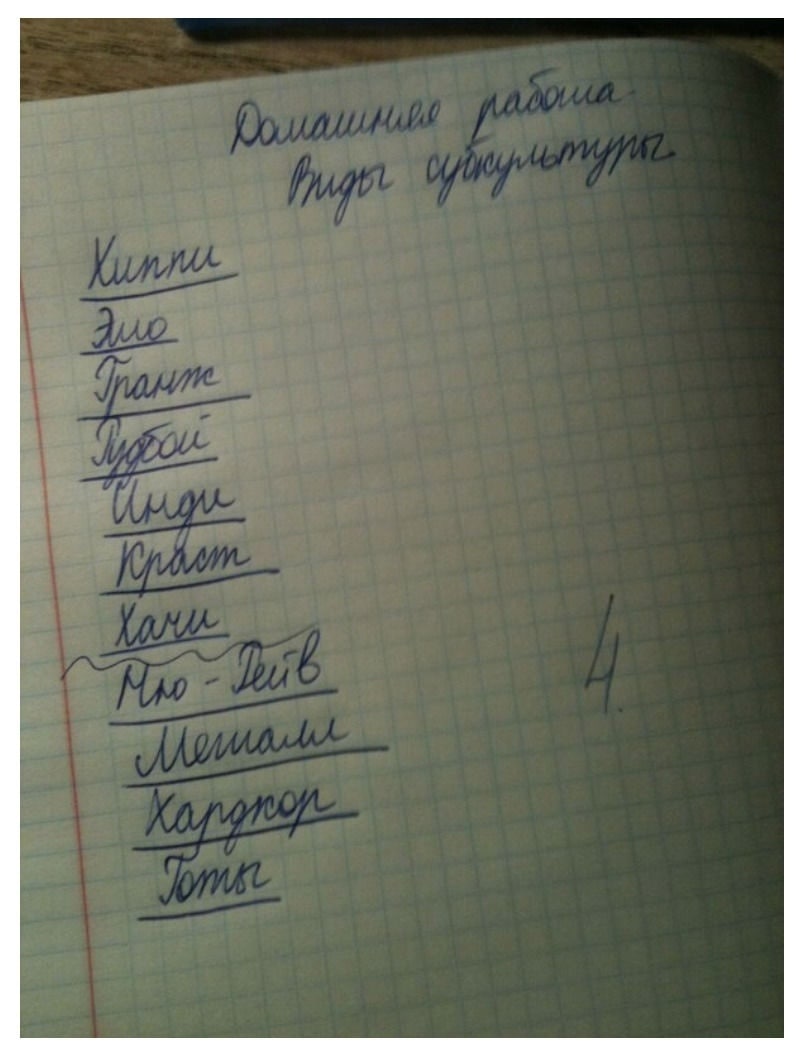 Домашняя работа.
Виды субкультуры.
Хиппи
Эмо
Гранж
Рудбой
Инди
Краст
Хачи
Мью - Вейв
Металл
Хардкор
Готы
4.